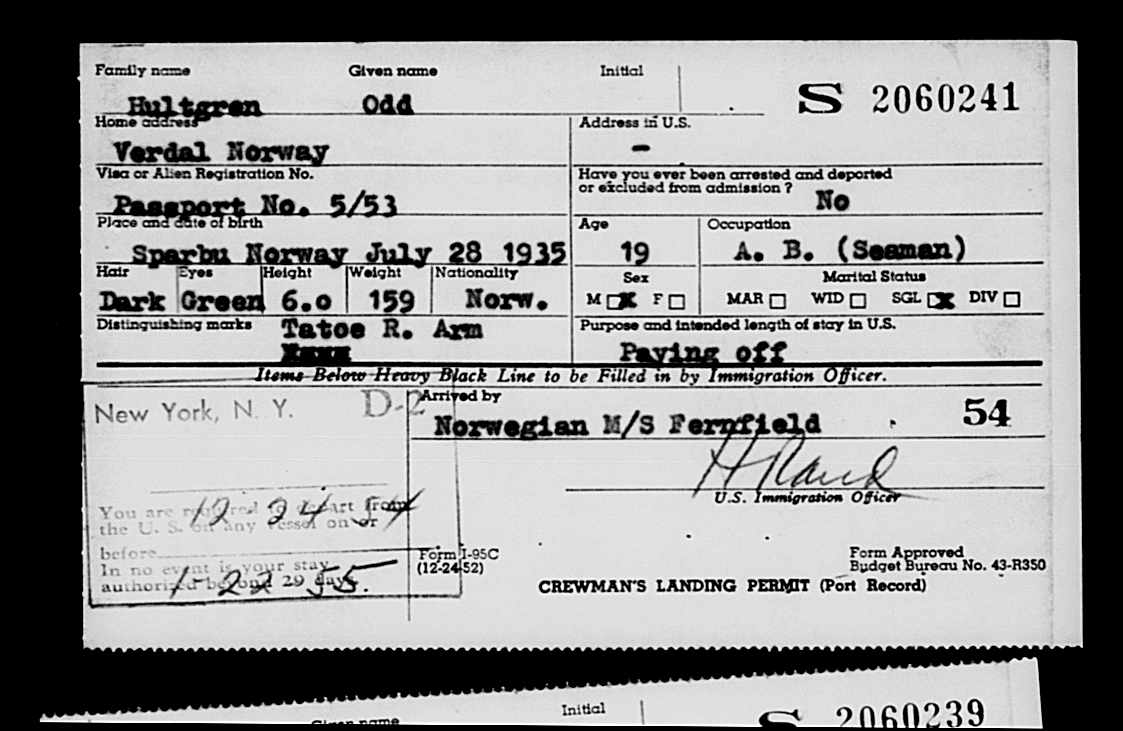 Family name Given name Initial
S 2060241
Hultgren Odd .
Home address Address in U.S.
Verdal Norway -
Visa or Alien Registration No. Have you ever been arrested and deported
or excluded from admission ?
Passport No. 5/53 No
Place and date of birth Age Occupation
Sparbu Norway July 28 1935 19 A. B. (Seaman)
Hair Eyes Height Weight Nationality Sex Marital Status
Dark Green 6.o 159 Norw. M X F MAR WID SGL X DIV
Distinguishing marks Tatoe R. Arm Purpose and intended length of stay in U.S.
Paying off
Items Below Heavy Black Line to be Filled in by Immigration Officer.
New York, N. Y. D-2 Arrived by
Norwegian M/S Fernfield 54
H Rand
U.S. Immigration Officer
12 24 54
You are required to depart from
the U. S. on any vessel on or
before
1-22 55
In no event is your stay
authorized beyond 29 days.
Form I-95C
(12-24-52)
Form Approved
Budget Bureau No. 43-R350
CREWMAN'S LANDING PERMIT (Port Record)
Given name Initial S 2060239